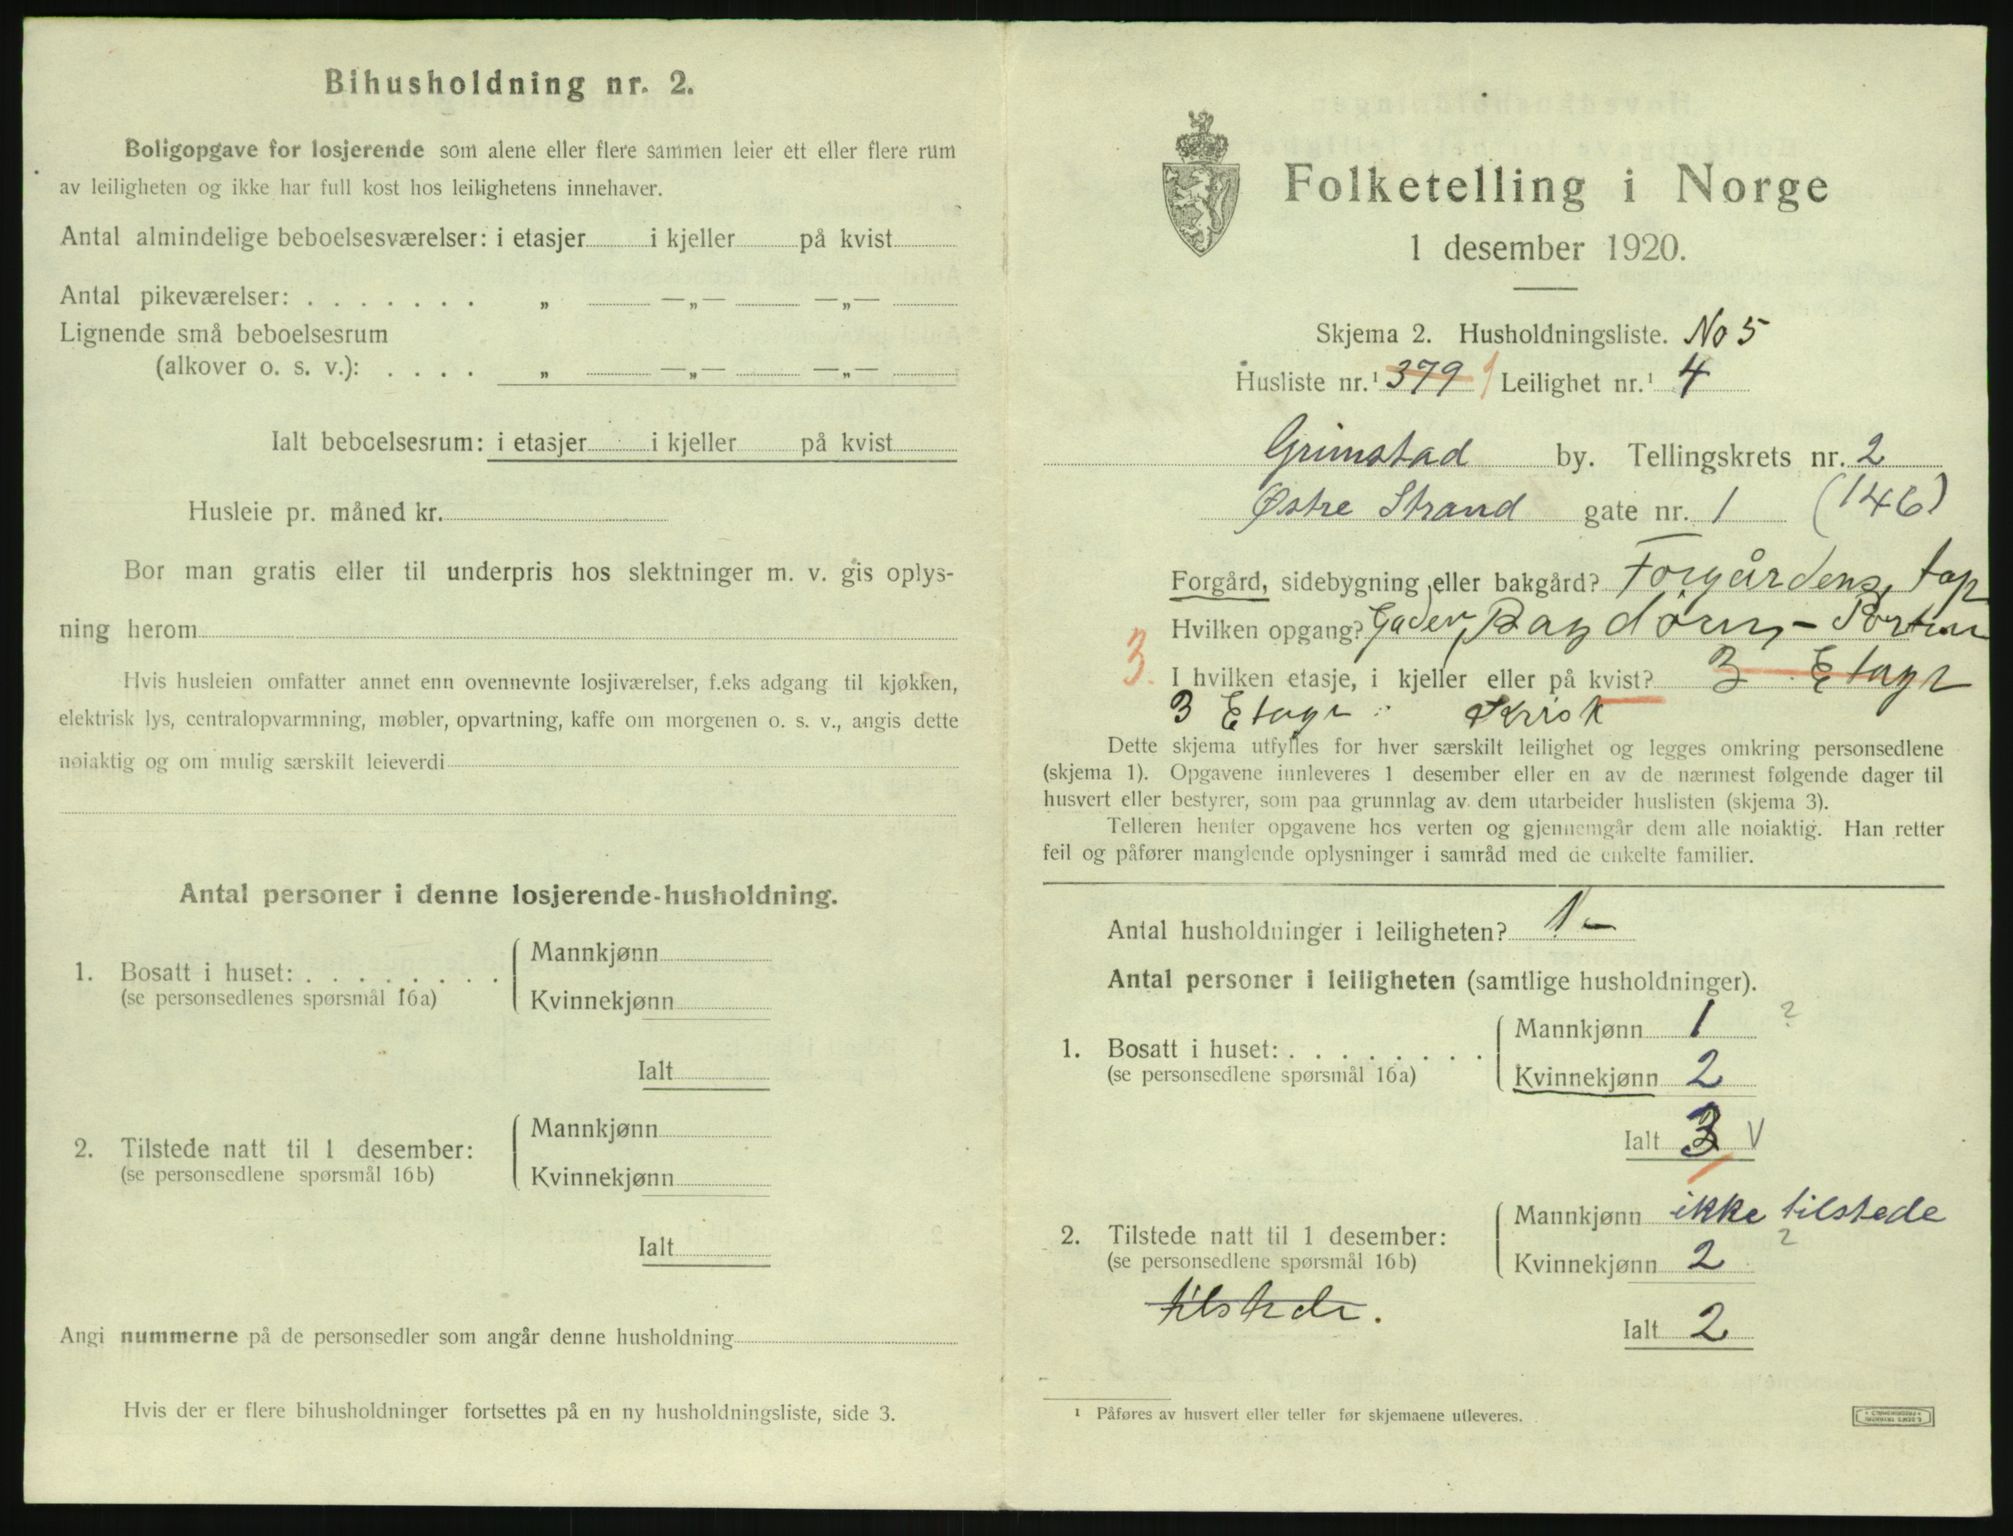 Bihusholdning nr. 2.
Boligopgave for losjerende som alene eller flere sammen leier ett eller flere rum
av leiligheten og ikke har full kost hos leilighetens innehaver.
Antal almindelige beboelsesværelser: i etasjer i kjeller på kvist
Antal pikeværelser: . . . . . . . „ —„— —„—
Lignende små beboelsesrum
(alkover o. s. v.): . . . . „ —„— —„—
Ialt beboelsesrum: i etasjer i kjeller på kvist
Husleie pr. måned kr.
Bor man gratis eller til underpris hos slektninger m. v. gis oplys-
ning herom
Hvis husleien omfatter annet enn ovennevnte losjiværelser, f.eks adgang til kjøkken,
elektrisk lys, centralopvarmning, møbler, opvartning, kaffe om morgenen o. s. v., angis dette
nøiaktig og om mulig særskilt leieverdi
Antal personer i denne losjerende-husholdning.
1. Bosatt i huset: . . . . . . . . Mannkjønn
(se personsedlenes spørsmål 16a) Kvinnekjønn
Ialt
2. Tilstede natt til 1 desember: Mannkjønn
(se personsedlene spørsmål 16b) Kvinnekjønn
Ialt
Angi nummerne på de personsedler som angår denne husholdning
Hvis der er flere bihusholdninger fortsettes på en ny husholdningsliste, side 3.
Folketelling i Norge
1 desember 1920.
Skjema 2. Husholdningsliste. No 5
Husliste nr.¹ 379 Leilighet nr.¹ 4
Grimstad by. Tellingskrets nr. 2
Østre Strand gate nr. 1 (146)
Forgård, sidebygning eller bakgård? Forgårdens
Hvilken opgang?
3. I hvilken etasje, i kjeller eller på kvist? 3 Etage
3 Etage
Dette skjema utfylles for hver særskilt leilighet og legges omkring personsedlene
(skjema 1). Opgavene innleveres 1 desember eller en av de nærmest følgende dager til
husvert eller bestyrer, som paa grunnlag av dem utarbeider huslisten (skjema 3).
Telleren henter opgavene hos verten og gjennemgår dem alle nøiaktig. Han retter
feil og påfører manglende oplysninger i samråd med de enkelte familier.
Antal husholdninger i leiligheten? 1 –
Antal personer i leiligheten (samtlige husholdninger).
1. Bosatt i huset: . . . . . . . . Mannkjønn 1 ?
(se personsedlene spørsmål 16a) Kvinnekjønn 2
Ialt 3 V
2. Tilstede natt til 1 desember: Mannkjønn ikke tilstede
(se personsedlene spørsmål 16b) Kvinnekjønn 2 ?
tilstede.
Ialt 2
¹ Påføres av husvert eller teller før skjemaene utleveres.